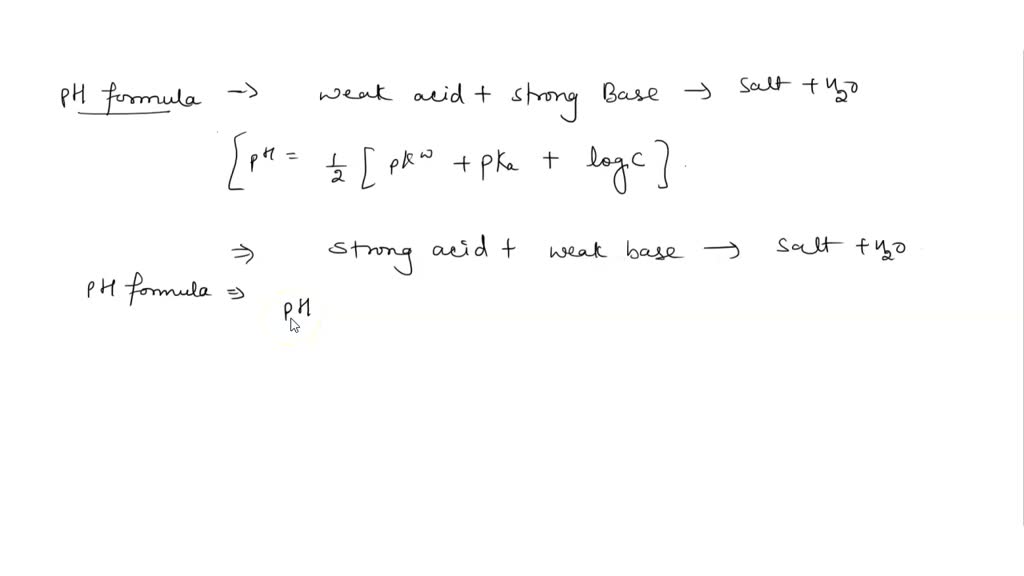 pH formula → weak acid + strong Base → salt + H2O
[pH = 1/2 [pKw + pKa + logC].
⇒ strong acid + weak base → salt + H2O
pH formula ⇒
pH